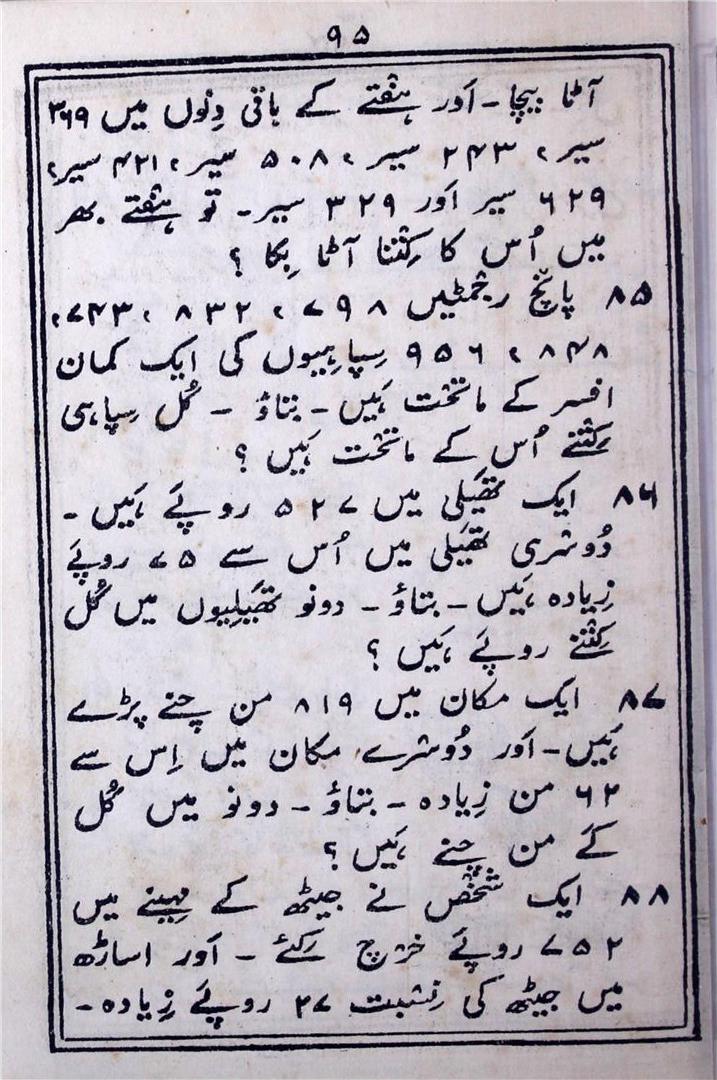 ۹۵
آٹا بیچا ۔ اَور ہفتے کے باقی دِنوں میں ۳۶۹
سیر ، ۲۴۳ سیر ، ۵۰۸ سیر ، ۴۲۱ سیر ،
۶۲۹ سیر اَور ۳۲۹ سیر ۔ تو ہفتے بھر
میں اُس کا کِتنا آٹا بِکا ؟
۸۵ پانچ رجمٹیں ۷۹۸ ، ۸۳۲ ، ۷۴۳ ،
۸۴۸ ، ۹۵۶ سِپاہیوں کی ایک کمان
افسر کے ماتحت ہَیں ۔ بتاؤ ۔ کُل سِپاہی
کِتنے اُس کے ماتحت ہَیں ؟
۸۶ ایک تھَیلی میں ۵۲۷ روپَے ہَیں ۔
دُوسری تھَیلی میں اُس سے ۷۵ روپَے
زِیادہ ہَیں ۔ بتاؤ ۔ دونو تھَیلِیوں میں کُل
کِتنے روپَے ہَیں ؟
۸۷ ایک مکان میں ۸۱۹ من چنے پڑے
ہَیں ۔ اَور دُوسرے مکان میں اِس سے
۶۲ من زِیادہ ۔ بتاؤ ۔ دونو میں کُل
کَے من چنے ہَیں ؟
۸۸ ایک شخص نے جیٹھ کے مہینے میں
۷۵۲ روپَے خرچ کئے ۔ اَور اساڑھ
میں جیٹھ کی نِسبت ۲۷ روپَے زِیادہ ۔